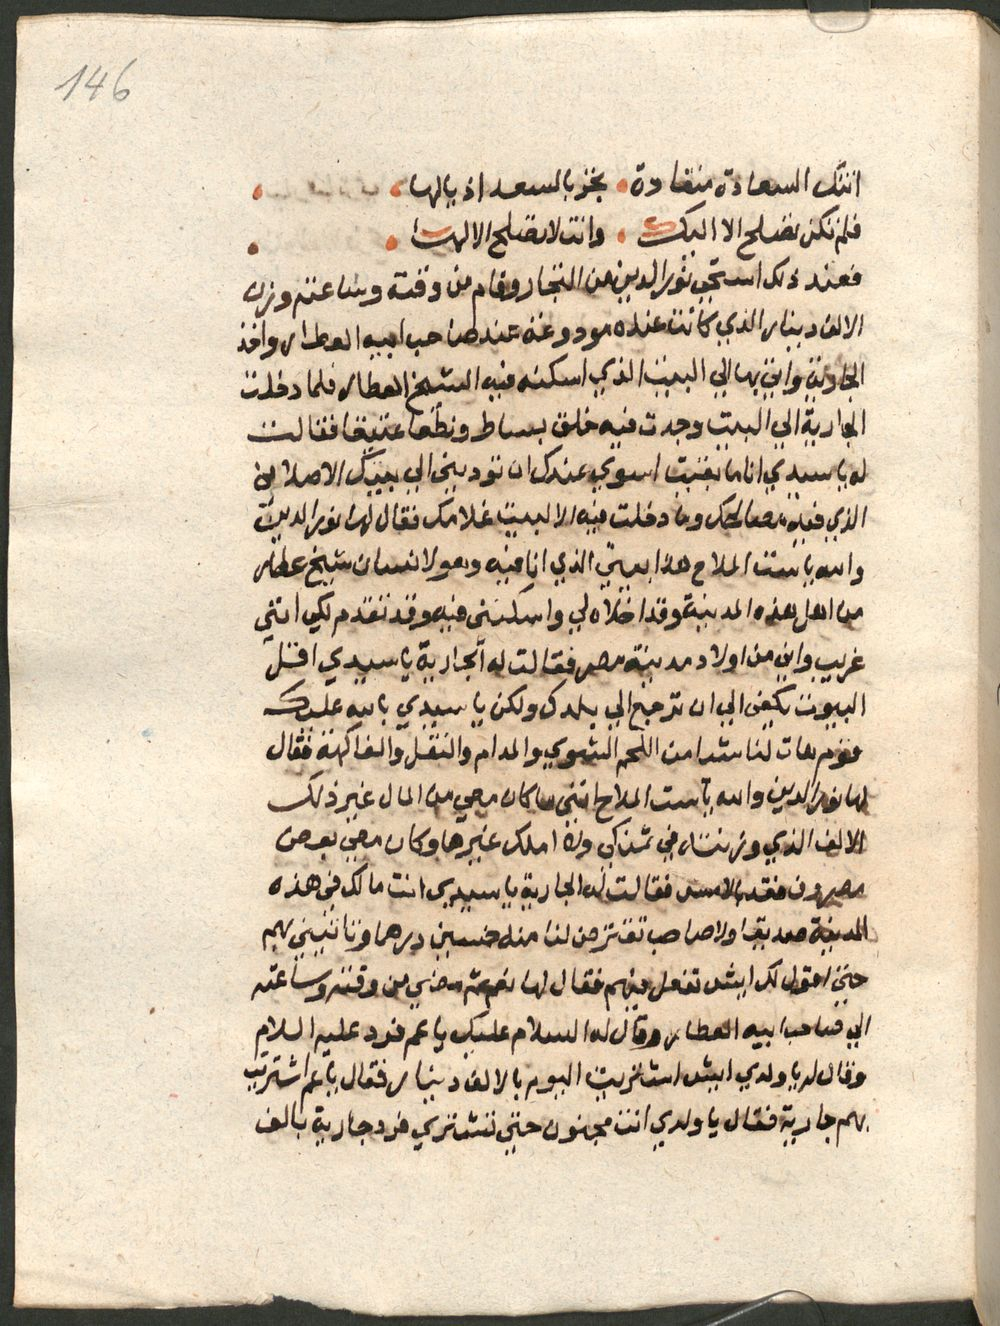 146
اتتك السعادة منقادة . بجر بالسعد اذيالها .
فلم تكن تصلح الا اليك . وانت لا تصلح الا لها .
فعند ذلك استحي نور الدين من التجار وقام من وقته وساعته ووزن
الالف دينار الذي كانت عنده مودوعة عند صاحب ابيه العطار واخذ
الجارية واتي بها الي البيت الذي اسكنه فيه الشيخ العطار فلما دخلت
الجارية الي البيت وجدت فيه خلق بساط ونطعا عتيقا فقالت
له يا سيدي انا ما بقيت اسوي عندك ان توديني الي بيتك الاصلاني
الذي فيه مصالحك وما دخلت فيه الا لبيت غلامك فقال لها نور الدين
والله يا ست الملاح هذا بيتي الذي انا فيه وهو لانسان شيخ عطار
من اهل هذه المدينة وقد اخلاه لي واسكنني فيه وقد تقدم لكي انني
غريب واني من اولاد مدينة مصر فقالت له الجارية يا سيدي اقل
البيوت يكفي الي ان ترجع الي بلدك ولكن يا سيدي بالله عليك
قوم هات لنا شيا من اللحم الشوي والمدام والنقل والفاكهة فقال
لها نور الدين والله يا ست الملاح انني ما كان معي من المال غير ذلك
الالف الذي وزنته في ثمنكي ولا املك غيرها وكان معي بعض
مصروف فقد بالامس فقالت له الجارية يا سيدي انت مالك في هذه
المدينة صديق اولا صاحب تقترض لنا منه خمسين درهما وتاتيني بهم
حتي اقول لك ايش تفعل فيهم فقال لها نعم ثم مضي من وقته وساعته
الي صاحب ابيه العطار وقال له السلام عليك يا عم فرد عليه السلام
وقال له يا ولدي ايش اشتريت اليوم بالالف دينار فقال يا عم اشتريت
بهم جارية فقال يا ولدي انت مجنون حتي تشتري فرد جارية بالف